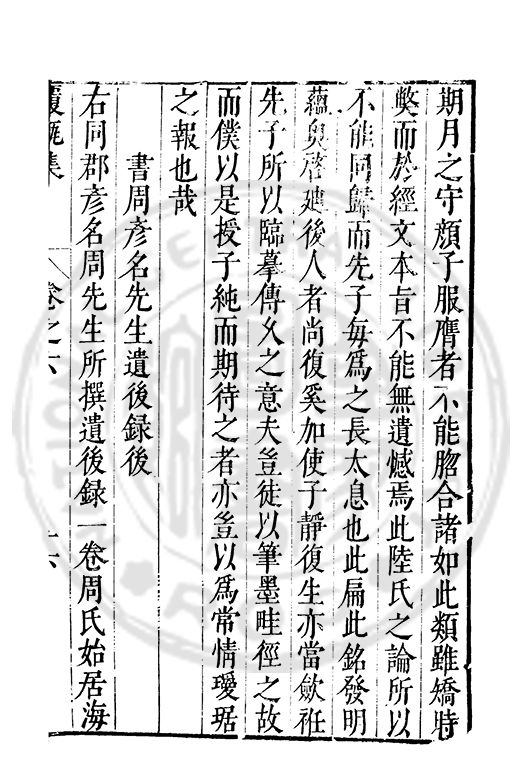 期月之守顔子服膺者不能脗合諸如此類雖矯時
獘而於經文本旨不能無遺憾焉此陸氏之論所以
不能同歸而先子每爲之長太息也此扁此銘發明
蘊奥啓廸後人者尚復奚加使子靜復生亦當歛袵
先子所以臨摹傳久之意夫豈徒以筆墨畦徑之故
而僕以是授子純而期待之者亦豈以爲常情瓊琚
之報也哉
書周彦名先生遺後録後
右同郡彦名周先生所撰遺後録一卷周氏始居海
覆瓿集
卷之六
十六